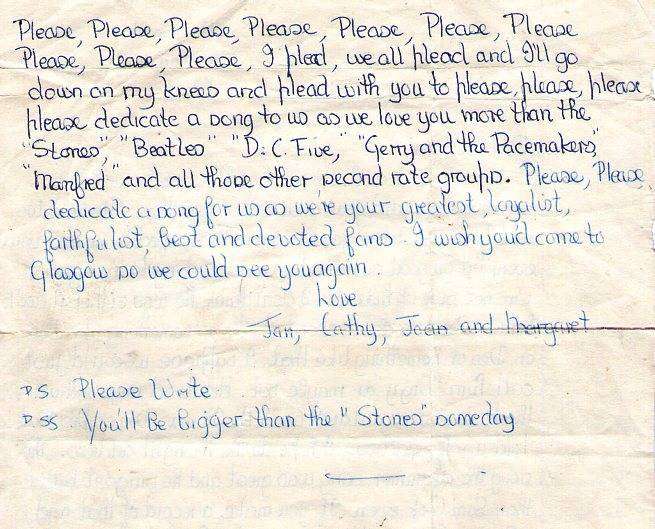 Please, Please, Please, Please, Please, Please, Please
Please, Please, Please, I plead, we all plead and I'll go
down on my knees and plead with you to please, please, please
please dedicate a song to us as we love you more than the
"Stones", "Beatles" "D.C. Five," "Gerry and the Pacemakers,"
"Manfred" and all those other second rate groups. Please, Please,
dedicate a song for us as we're your greatest, loyalist,
faithfulist, best and devoted fans. I wish you'd come to
Glasgow so we could see you again.
Love
Jan, Cathy, Jean and Margaret
P.S. Please Write
P.SS You'll Be Bigger than the "Stones" someday